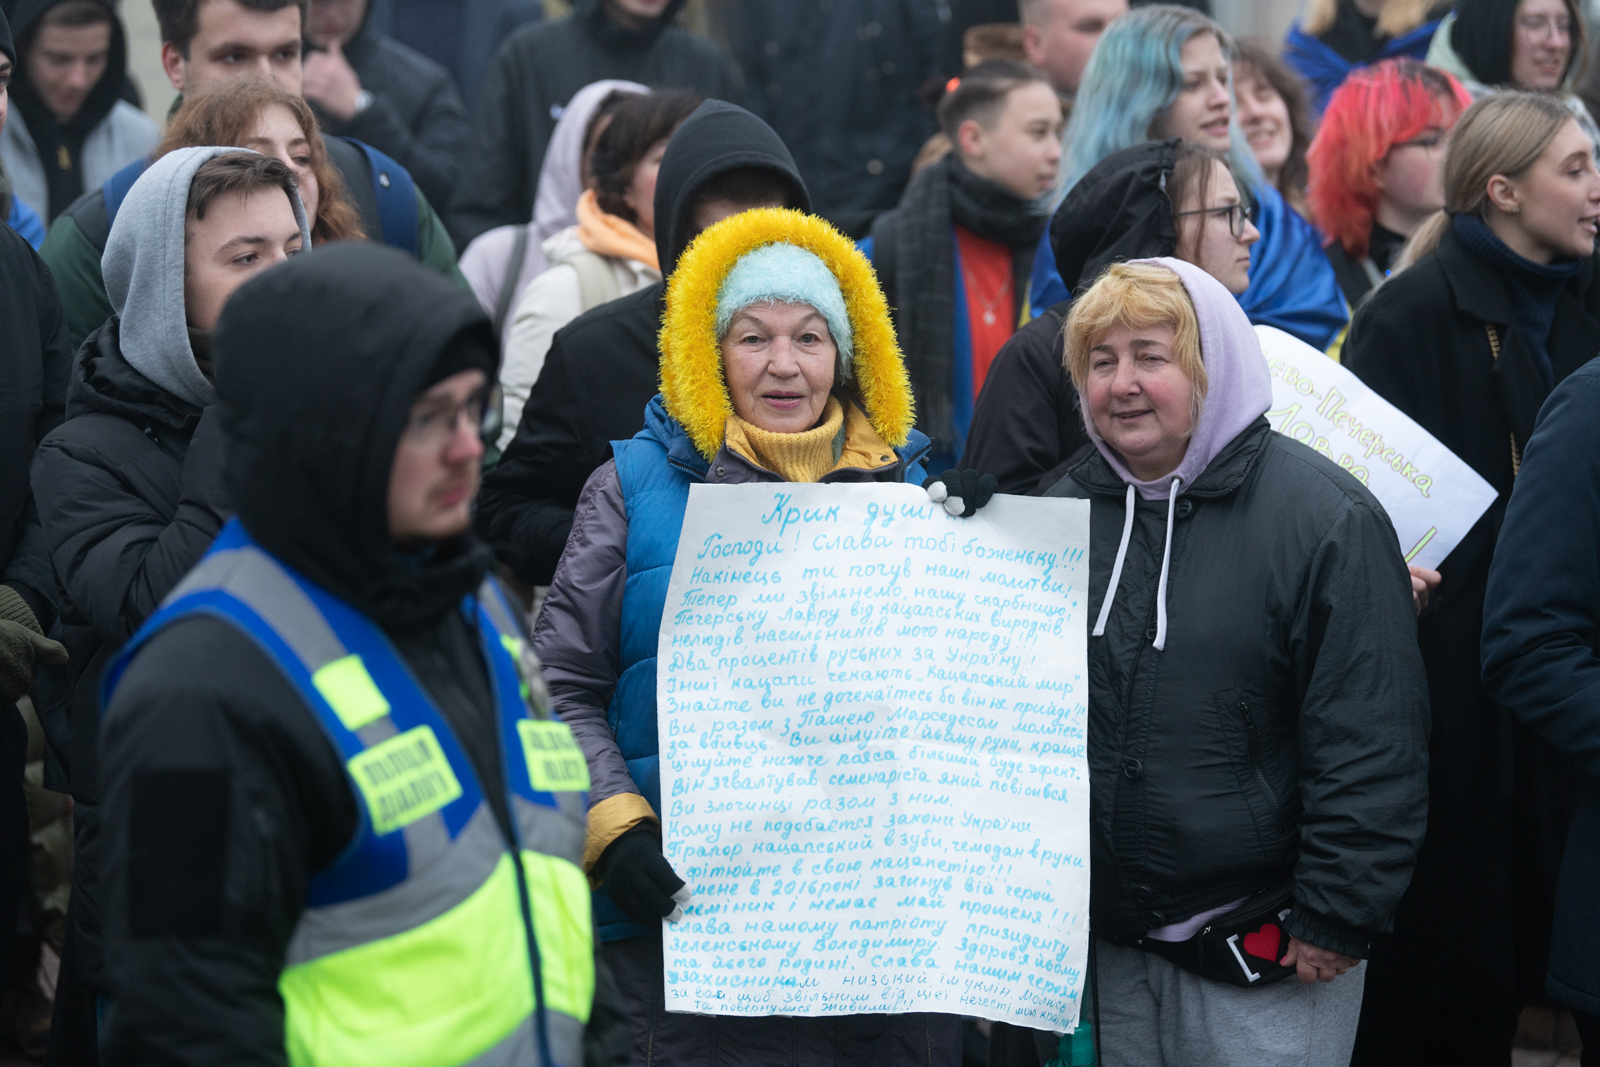 Крик душі
Господи! Слава тобі боженьку!!!
Накінець ти почув наші молитви!
Тепер ми звільнемо, нашу скарбницю!
Печерську Лавру від кацапських виродків,
нелюдів, насильників мого народу!!!
Два процентів руських за Україну!
Інші кацапи чекають „Кацапський мир"
Знайте ви не дочекаїтесь бо він не прийде!!!
Ви разом з Пашею Марседесом молитесь
за вбивць. Ви цілуїте йьому руки, краще
цілуйте нижче пояса більший буде эфект.
Він згвалтував семенаріста який повісився
Ви злочинці разом з ним.
Кому не подобається закони України
Прапор кацапський в зуби, чемодан в руки
фітюйте в свою кацапетію!!!
мене в 2016 році загинув вій герой
леміник і немає май прощеня!!!
Слава нашому патріоту призиденту
Зеленському Володимиру. Здоров'я йьому
та його родині. Слава нашим героям
захисникам низький їм уклін, молюсь
за вас, щоб звільнили від цієї нечесті мою країну
та повернулися живими!!!
ево-Печерська
Лавра
ПОЛІЦІЯ
ДІАЛОГУ